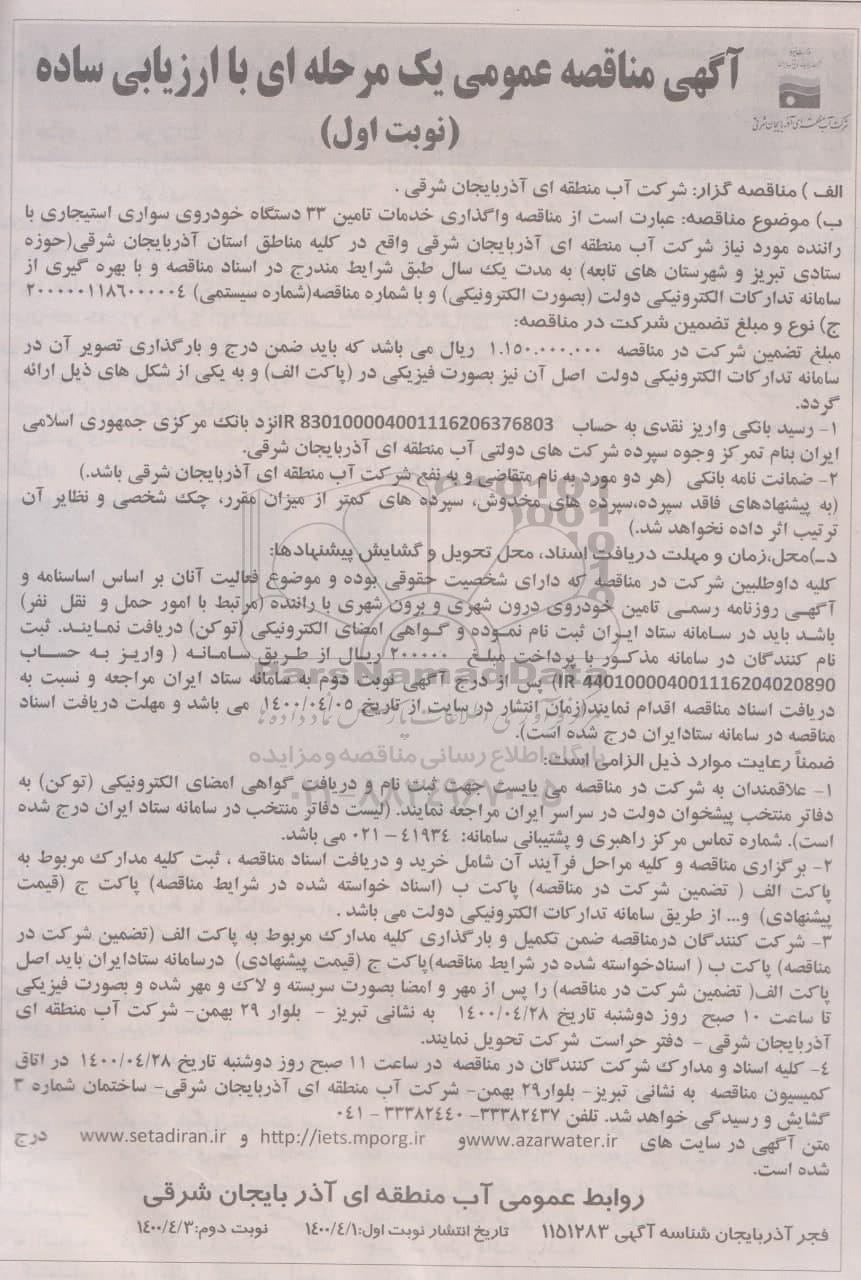 آگهی مناقصه عمومی یک مرحله ای با ارزیابی ساده
(نوبت اول)
شرکت آب منطقه ای آذربایجان شرقی
الف ) مناقصه گزار: شرکت آب منطقه ای آذربایجان شرقی .
ب) موضوع مناقصه: عبارت است از مناقصه واگذاری خدمات تامین ۳۳ دستگاه خودروی سواری استیجاری با
راننده مورد نیاز شرکت آب منطقه ای آذربایجان شرقی واقع در کلیه مناطق استان آذربایجان شرقی(حوزه
ستادی تبریز و شهرستان های تابعه) به مدت یک سال طبق شرایط مندرج در اسناد مناقصه و با بهره گیری از
سامانه تدارکات الکترونیکی دولت (بصورت الکترونیکی) و با شماره مناقصه(شماره سیستمی) ۲۰۰۰۰۰۱۱۸۶۰۰۰۰۰۴
ج) نوع و مبلغ تضمین شرکت در مناقصه:
مبلغ تضمین شرکت در مناقصه ۱.۱۵۰.۰۰۰.۰۰۰ ریال می باشد که باید ضمن درج و بارگذاری تصویر آن در
سامانه تدارکات الکترونیکی دولت اصل آن نیز بصورت فیزیکی در (پاکت الف) و به یکی از شکل های ذیل ارائه
گردد.
۱- رسید بانکی واریز نقدی به حساب IR 830100004001116206376803نزد بانک مرکزی جمهوری اسلامی
ایران بنام تمرکز وجوه سپرده شرکت های دولتی آب منطقه ای آذربایجان شرقی.
۲- ضمانت نامه بانکی (هر دو مورد به نام متقاضی و به نفع شرکت آب منطقه ای آذربایجان شرقی باشد.)
(به پیشنهادهای فاقد سپرده،سپرده های مخدوش، سپرده های کمتر از میزان مقرر، چک شخصی و نظایر آن
ترتیب اثر داده نخواهد شد.)
د-)محل،زمان و مهلت دریافت اسناد، محل تحویل و گشایش پیشنهادها:
کلیه داوطلبین شرکت در مناقصه که دارای شخصیت حقوقی بوده و موضوع فعالیت آنان بر اساس اساسنامه و
آگهی روزنامه رسمی تامین خودروی درون شهری و برون شهری با راننده (مرتبط با امور حمل و نقل نفر)
باشد باید در سامانه ستاد ایران ثبت نام نموده و گواهی امضای الکترونیکی (توکن) دریافت نمایند. ثبت
نام کنندگان در سامانه مذکور با پرداخت مبلغ ۲۰۰۰۰۰ ریال از طریق سامانه ( واریز به حساب
IR 440100004001116204020890) پس از درج آگهی نوبت دوم به سامانه ستاد ایران مراجعه و نسبت به
دریافت اسناد مناقصه اقدام نمایند(زمان انتشار در سایت از تاریخ ۱۴۰۰/۰۴/۰۵ می باشد و مهلت دریافت اسناد
مناقصه در سامانه ستادایران درج شده است).
ضمناً رعایت موارد ذیل الزامی است:
۱- علاقمندان به شرکت در مناقصه می بایست جهت ثبت نام و دریافت گواهی امضای الکترونیکی (توکن) به
دفاتر منتخب پیشخوان دولت در سراسر ایران مراجعه نمایند. (لیست دفاتر منتخب در سامانه ستاد ایران درج شده
است). شماره تماس مرکز راهبری و پشتیبانی سامانه: ۴۱۹۳۴ – ۰۲۱ می باشد.
۲- برگزاری مناقصه و کلیه مراحل فرآیند آن شامل خرید و دریافت اسناد مناقصه ، ثبت کلیه مدارک مربوط به
پاکت الف ( تضمین شرکت در مناقصه) پاکت ب (اسناد خواسته شده در شرایط مناقصه) پاکت ج (قیمت
پیشنهادی) و... از طریق سامانه تدارکات الکترونیکی دولت می باشد .
۳- شرکت کنندگان درمناقصه ضمن تکمیل و بارگذاری کلیه مدارک مربوط به پاکت الف (تضمین شرکت در
مناقصه) پاکت ب ( اسنادخواسته شده در شرایط مناقصه)پاکت ج (قیمت پیشنهادی) درسامانه ستادایران باید اصل
پاکت الف( تضمین شرکت در مناقصه) را پس از مهر و امضا بصورت سربسته و لاک و مهر شده و بصورت فیزیکی
تا ساعت ۱۰ صبح روز دوشنبه تاریخ ۱۴۰۰/۰۴/۲۸ به نشانی تبریز - بلوار ۲۹ بهمن- شرکت آب منطقه ای
آذربایجان شرقی - دفتر حراست شرکت تحویل نمایند.
۴- کلیه اسناد و مدارک شرکت کنندگان در مناقصه در ساعت ۱۱ صبح روز دوشنبه تاریخ ۱۴۰۰/۰۴/۲۸ در اتاق
کمیسیون مناقصه به نشانی تبریز- بلوار۲۹ بهمن- شرکت آب منطقه ای آذربایجان شرقی- ساختمان شماره ۳
گشایش و رسیدگی خواهد شد. تلفن ۳۳۳۸۲۴۳۷- ۳۳۳۸۲۴۴۰ - ۰۴۱
متن آگهی در سایت های www.azarwater.irو http://iets.mporg.ir و www.setadiran.ir درج
شده است.
روابط عمومی آب منطقه ای آذر بایجان شرقی
فجر آذربایجان شناسه آگهی ۱۱۵۱۲۸۳ تاریخ انتشار نوبت اول:۱۴۰۰/۴/۱ نوبت دوم:۱۴۰۰/۴/۳
ParsNamadData
پایگاه اطلاع رسانی مناقصه و مزایده